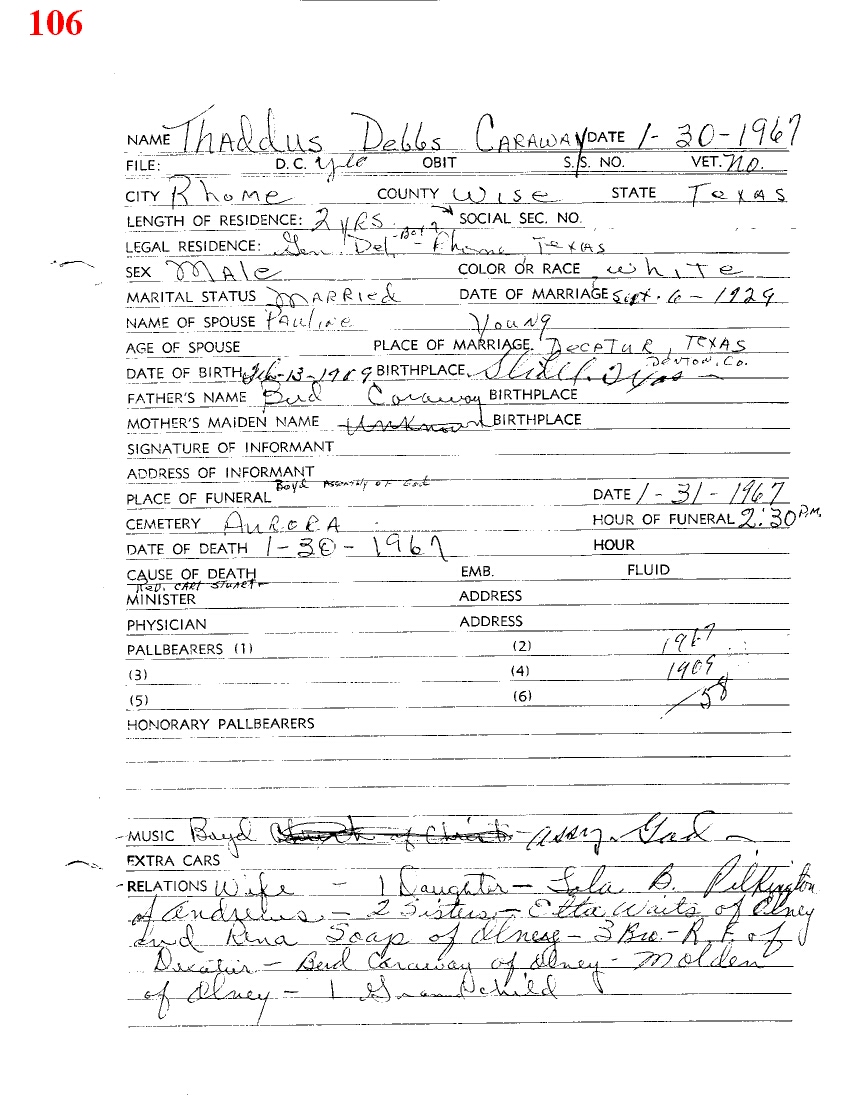 106
NAME Thaddus Debbs Caraway DATE 1-30-1967
FILE: D.C. OBIT S.S. NO. VET. No.
CITY Rhome COUNTY Wise STATE Texas
LENGTH OF RESIDENCE: 2 yrs. SOCIAL SEC. NO.
LEGAL RESIDENCE: Gen Del - Box 7 - Rhome Texas
SEX Male COLOR OR RACE White
MARITAL STATUS Married DATE OF MARRIAGE Sept. 6-1929
NAME OF SPOUSE Pauline Young
AGE OF SPOUSE PLACE OF MARRIAGE. Decatur, Texas
DATE OF BIRTH Feb-13-1909 BIRTHPLACE Slidell, Texas Denton, Co.
FATHER'S NAME Burd Caraway BIRTHPLACE
MOTHER'S MAIDEN NAME Unknown BIRTHPLACE
SIGNATURE OF INFORMANT
ADDRESS OF INFORMANT
PLACE OF FUNERAL Boyd Assembly of God DATE 1-31-1967
CEMETERY Aurora HOUR OF FUNERAL 2:30 P.M.
DATE OF DEATH 1-30-1967 HOUR
CAUSE OF DEATH EMB. FLUID
MINISTER Rev. Carl Stuart ADDRESS
PHYSICIAN ADDRESS
PALLBEARERS (1) (2) 1967
(3) (4) 1909
(5) (6) 58
HONORARY PALLBEARERS
MUSIC Boyd Church of Christ - Assy. God
EXTRA CARS
RELATIONS Wife - 1 Daughter - Lola B. Pilkington
of Andrews. - 2 Sisters - Etta Waits of Olney
and Rena Soap of Olney - 3 Bro. - R. F. of
Decatur - Berd Caraway of Olney - Molden
of Olney - 1 Grandchild